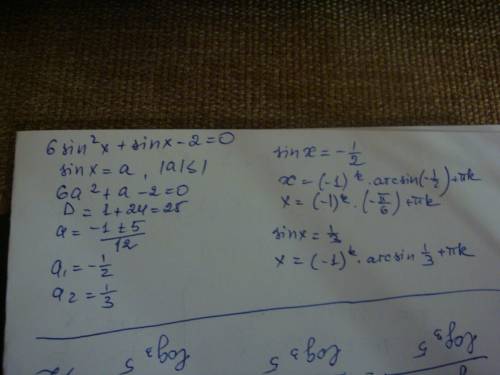 6sin²x + sinx - 2 = 0
sinx = a , |a| ≤ 1
6a² + a - 2 = 0
D = 1 + 24 = 25
a = (-1 ± 5)/12
a₁ = -1/2
a₂ = 1/3
sinx = -1/2
x = (-1)ᵏ · arcsin(-1/2) + πk
x = (-1)ᵏ · (-π/6) + πk
sinx = 1/3
x = (-1)ᵏ · arcsin 1/3 + πk
log₃ 5 log₃ 5 log₃ 5